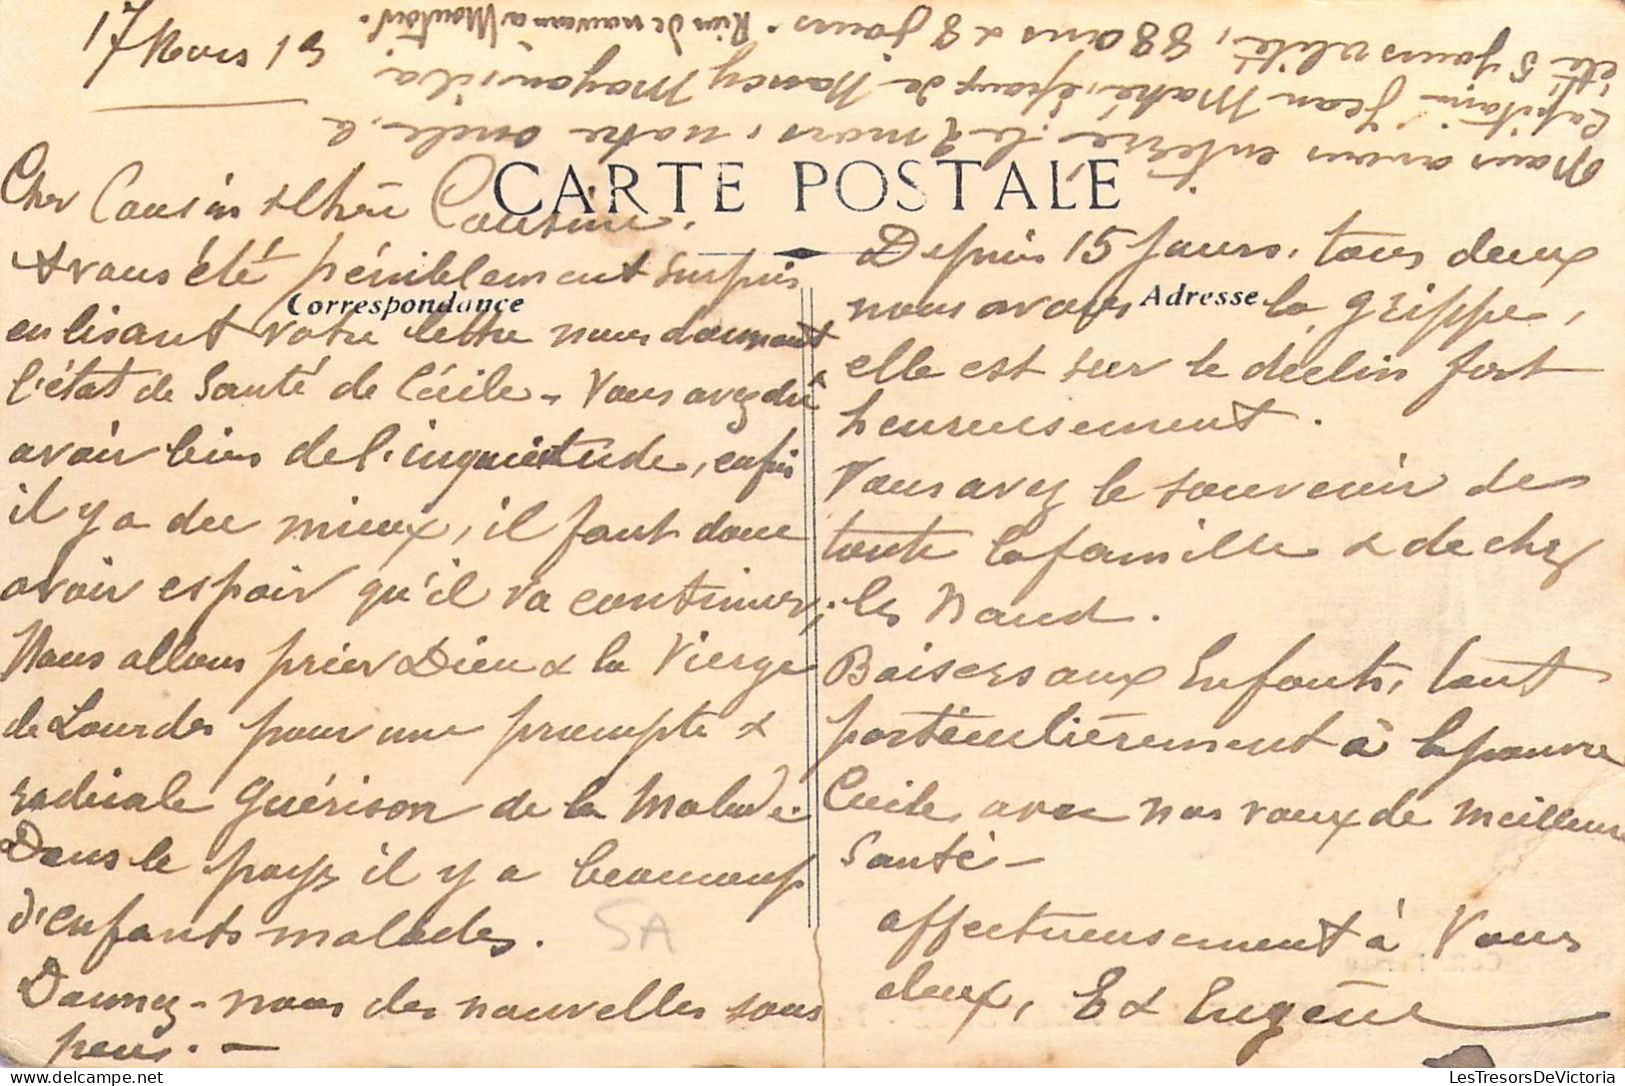 17 Mars 19
CARTE POSTALE
Correspondance
Adresse
Cher Cousin & Chère Cousine.
Avons été péniblement surpris
en lisant votre lettre nous donnant
l'état de santé de Cécile - Vous avez dû
avoir bien de l'inquiétude, enfin
il y a du mieux, il faut donc
avoir espoir qu'il va continuer,
Nous allons prier Dieu & la Vierge
de Lourdes pour une prompte &
radicale guérison de la Malade.
Dans le pays il y a beaucoup
d'enfants malades.
Donnez-nous des nouvelles sous
peu. -
Depuis 15 jours, tous deux
nous avons la grippe,
elle est sur le déclin fort
heureusement.
Vous avez le souvenir de
toute la famille & de chez
les Naud.
Baisers aux Enfants, tout
particulièrement à la pauvre
Cécile, avec nos vœux de meilleure
Santé -
affectueusement à Vous
deux, E & Eugène
Nous avons enterré, le 9 mars, notre oncle, le
Capitaine Jean Mahé, époux de Nancy Mayon
été 5 jours alité, 88 ans & 8 jours. Rien de nouveau à Montoir.
SA
LesTresorsDeVictoria